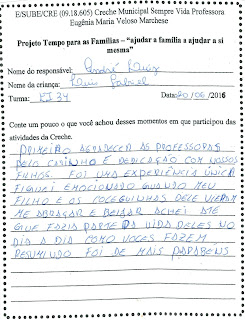 E/SUBE/CRE (09.18.605) Creche Municipal Sempre Vida Professora
Eugênia Maria Veloso Marchese
Projeto Tempo para as Famílias – "ajudar a família a ajudar a si
mesma"
Nome do responsável: André Luiz
Nome da criança: Luiz Gabriel
Turma: EI34 Data: 20/06/2016
Conte um pouco o que você achou desses momentos em que participou das
atividades da Creche.
PRIMEIRO AGRADECER AS PROFESSORAS
PELO CARINHO E DEDICAÇÃO COM NOSSOS
FILHOS. FOI UMA EXPERIÊNCIA ÚNICA
FIQUEI EMOCIONADO QUANDO MEU
FILHO E OS COLEGUINHAS DELE VIERAM
ME ABRAÇAR E BEIJAR ACHEI ATÉ
QUE FAZIA PARTE DA VIDA DELES NO
DIA A DIA COMO VOCES FAZEM
RESUMINDO FOI DE MAIS PARABENS